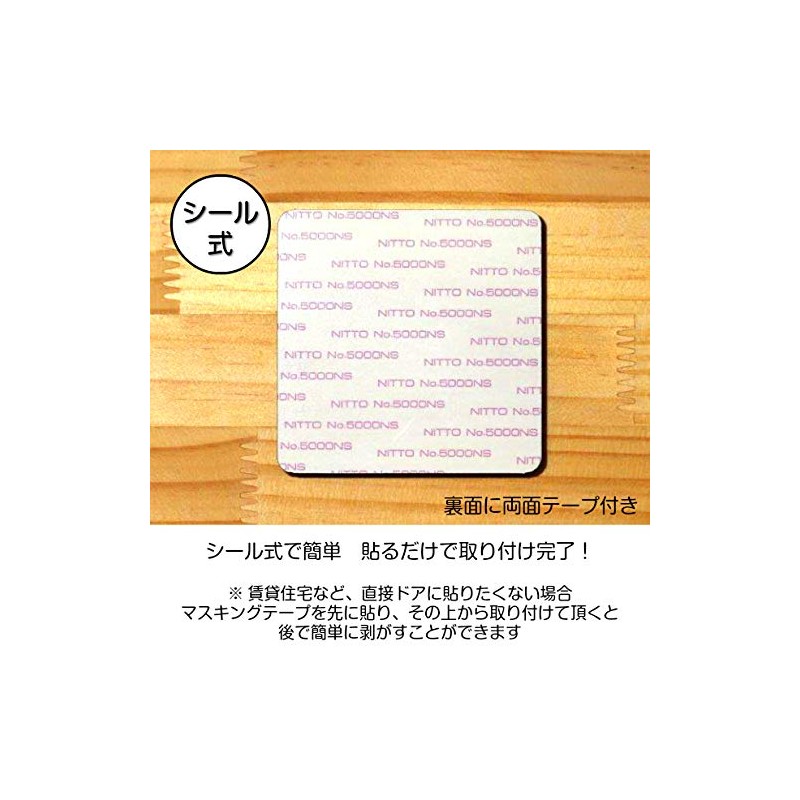 シール
式
NITTO No.5000NS NITTO No.5000NS
No.5000NS NITTO No.5000NS
NITTO No.5000NS NITTO No.5
NITTO No.5000NS NITTO No.5000NS
No.5000NS NITTO No.5000NS
000NS NITTO No.5000NS NITTO No.5
NITTO No.5000NS NITTO No.5000NS
No.5000NS NITTO No.5000NS
000NS NITTO No.5000NS NITTO No.5
No.5000NS NITTO No.5000NS
NITTO No.5000NS
裏面に両面テープ付き
シール式で簡単 貼るだけで取り付け完了！
※ 賃貸住宅など、直接ドアに貼りたくない場合
マスキングテープを先に貼り、その上から取り付けて頂くと
後で簡単に剥がすことができます